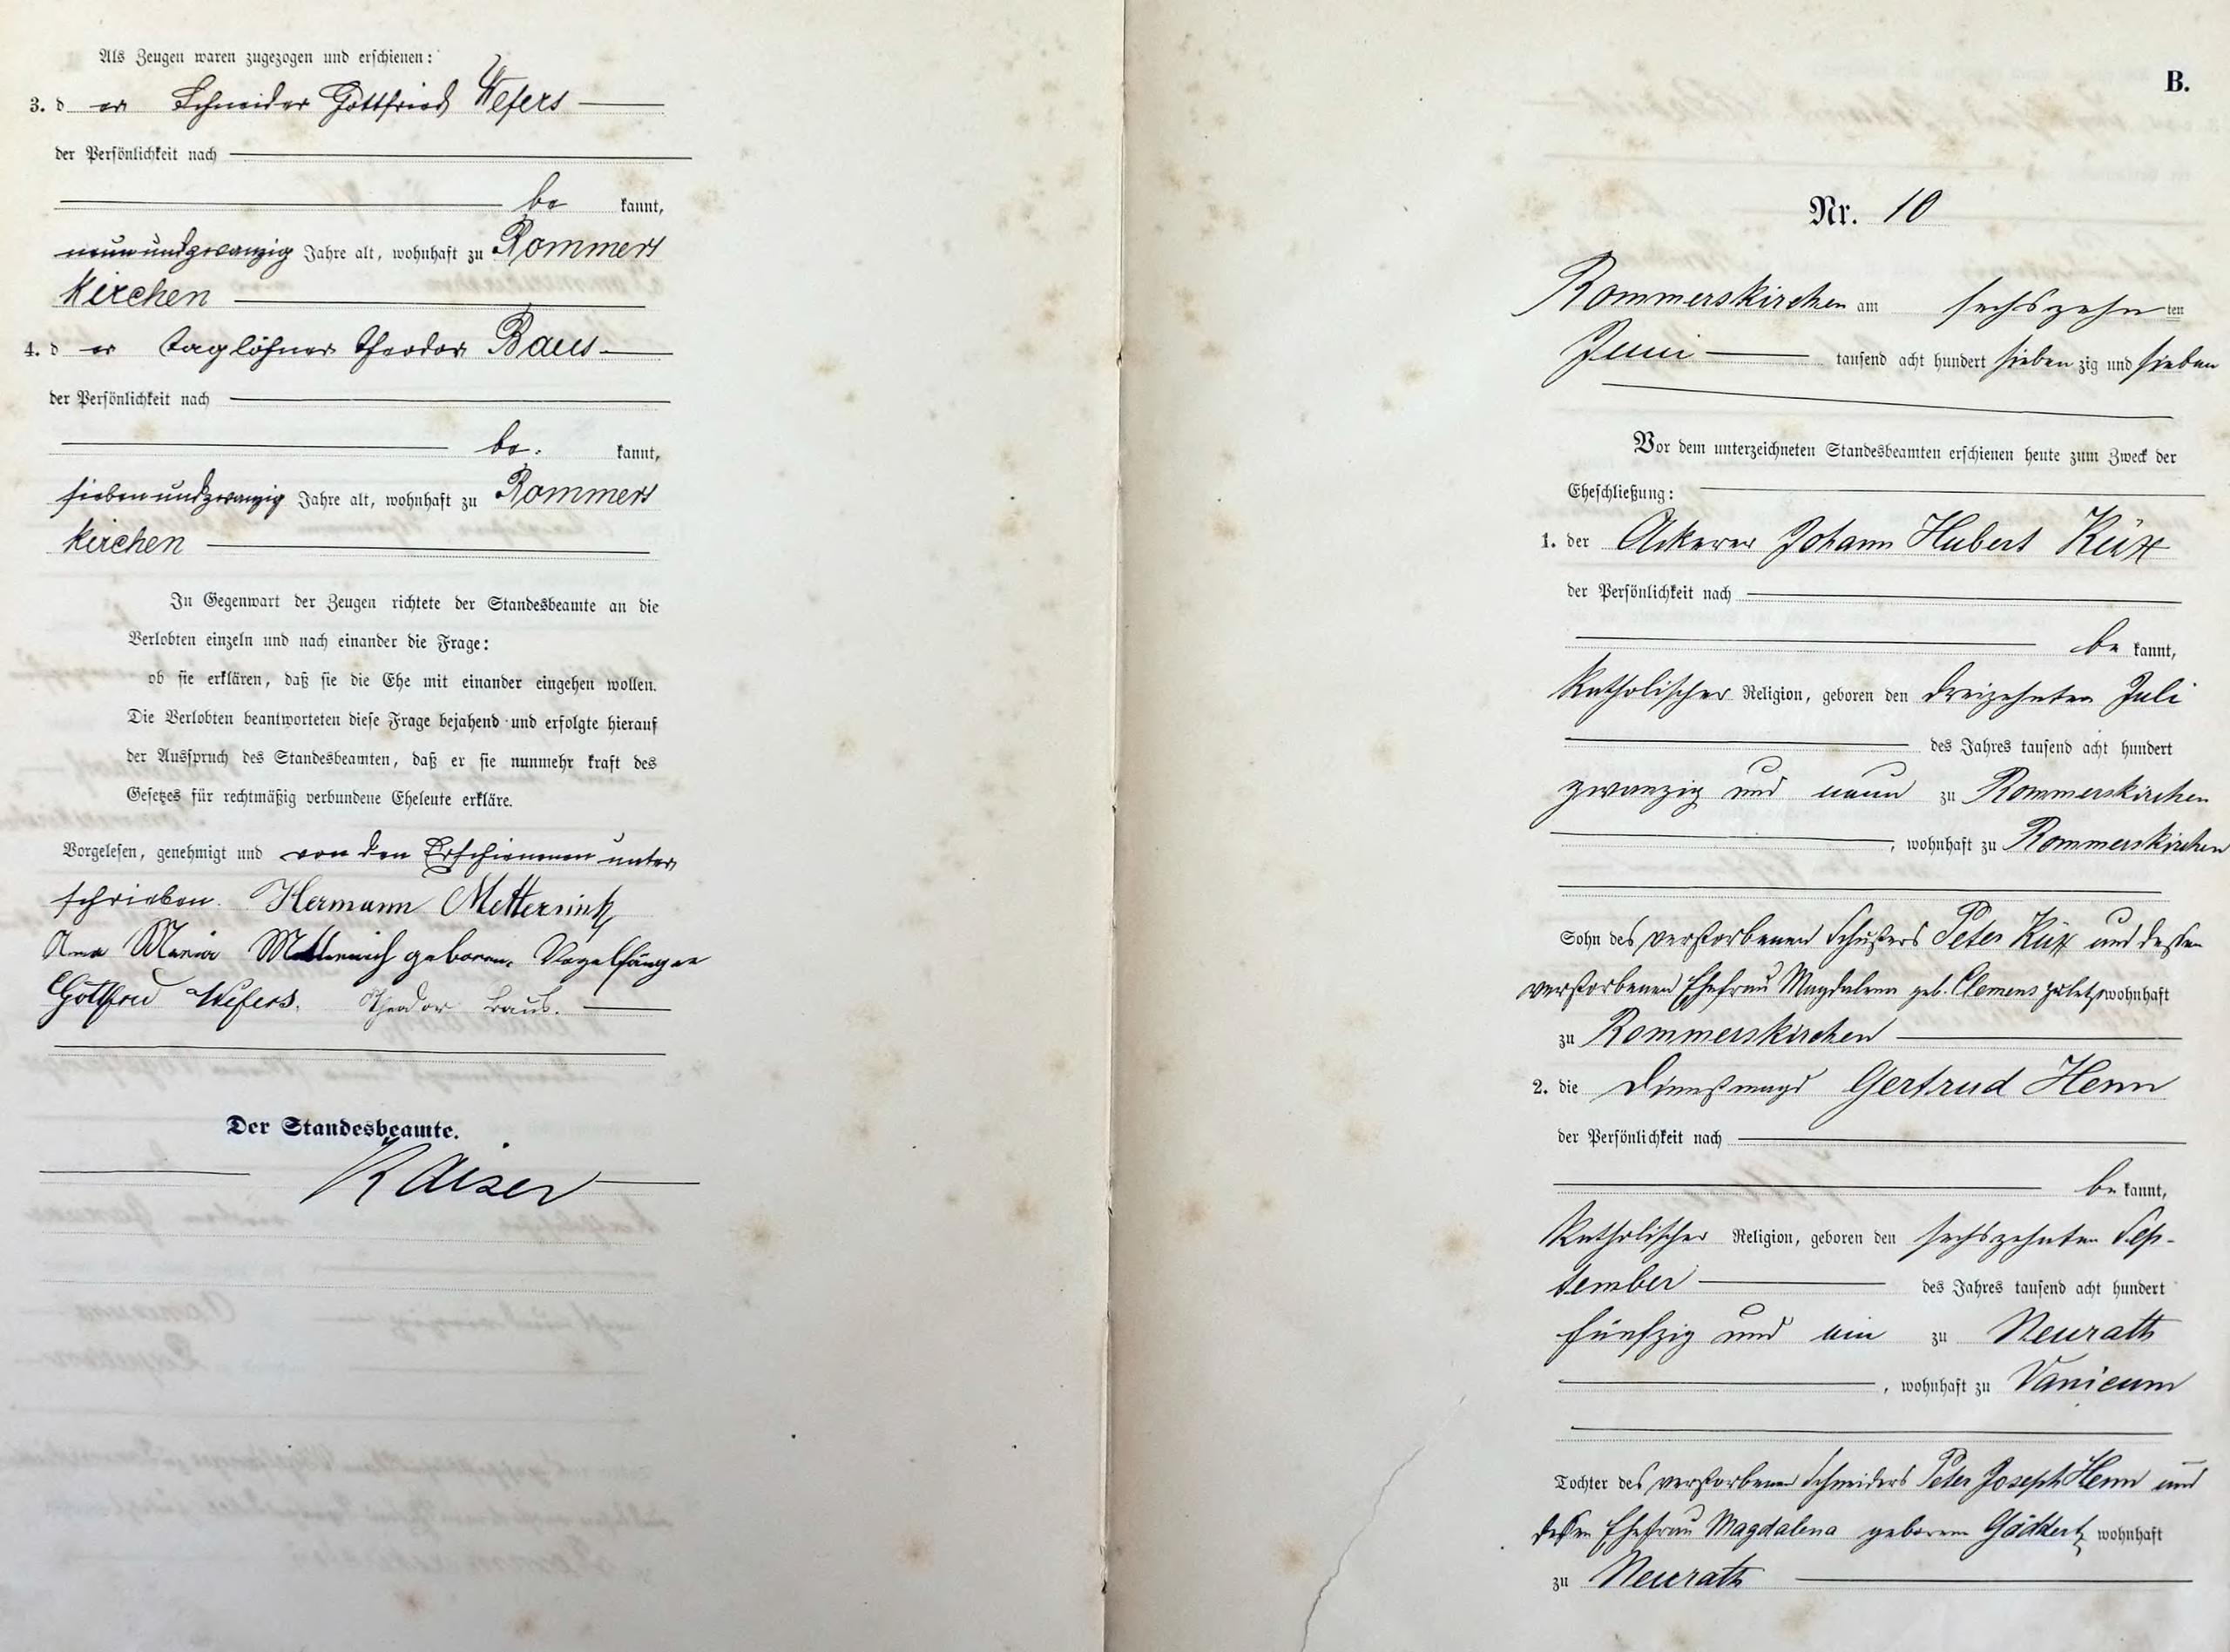 Als Zeugen waren zugezogen und erschienen:
3. d er Schneider Gottfried Wefers
der Persönlichkeit nach
be kannt,
neunundzwanzig Jahre alt, wohnhaft zu Rommers
kirchen
4. d er Taglöhner Theodor Baus
der Persönlichkeit nach
be. kannt,
siebenundzwanzig Jahre alt, wohnhaft zu Rommers
kirchen
In Gegenwart der Zeugen richtete der Standesbeamte an die
Verlobten einzeln und nach einander die Frage:
ob sie erklären, daß sie die Ehe mit einander eingehen wollen.
Die Verlobten beantworteten diese Frage bejahend und erfolgte hierauf
der Ausspruch des Standesbeamten, daß er sie nunmehr kraft des
Gesetzes für rechtmäßig verbundene Eheleute erkläre.
Vorgelesen, genehmigt und von den Erschienenen unter
schrieben. Hermann Metternich
Anna Maria Metternich geborene Vogelfänger
Gottfried Wefers. Theodor Baus.
Der Standesbeamte.
Kaiser
B.
Nr. 10
Rommerskirchen am sechszehn ten
Juni tausend acht hundert sieben zig und sieben
Vor dem unterzeichneten Standesbeamten erschienen heute zum Zweck der
Eheschließung:
1. der Ackerer Johann Hubert Küx
der Persönlichkeit nach
be kannt,
katholischer Religion, geboren den dreizehnten Juli
des Jahres tausend acht hundert
zwanzig und neun zu Rommerskirchen
, wohnhaft zu Rommerskirchen
Sohn des verstorbenen Schusters Peter Küx und dessen
verstorbenen Ehefrau Magdalena geb. Clemens zuletzt wohnhaft
zu Rommerskirchen
2. die Dienstmagd Gertrud Henn
der Persönlichkeit nach
be kannt,
katholischer Religion, geboren den sechszehnten Sep-
tember des Jahres tausend acht hundert
fünfzig und ein zu Neurath
, wohnhaft zu Vanicum
Tochter des verstorbenen Schneiders Peter Joseph Henn und
dessen Ehefrau Magdalena geborene Göddertz wohnhaft
zu Neurath